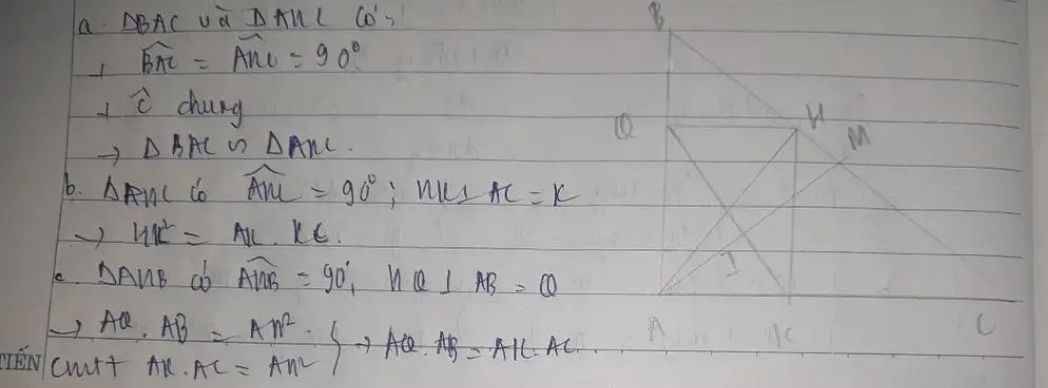 a. ΔBAC và ΔAHC có:
+ BAC = AHC = 90°
+ C chung
→ ΔBAC ∽ ΔAHC.
b. ΔAHC có AHC = 90°; HK ⊥ AC = K
→ HK² = AK. KC.
c. ΔAHB có AHB = 90°, HQ ⊥ AB = Q
→ AQ. AB = AH².
CMTT AK.AC = AH² } → AQ.AB = AK.AC.
TIẾN
B
Q
H
M
I
A
K
C